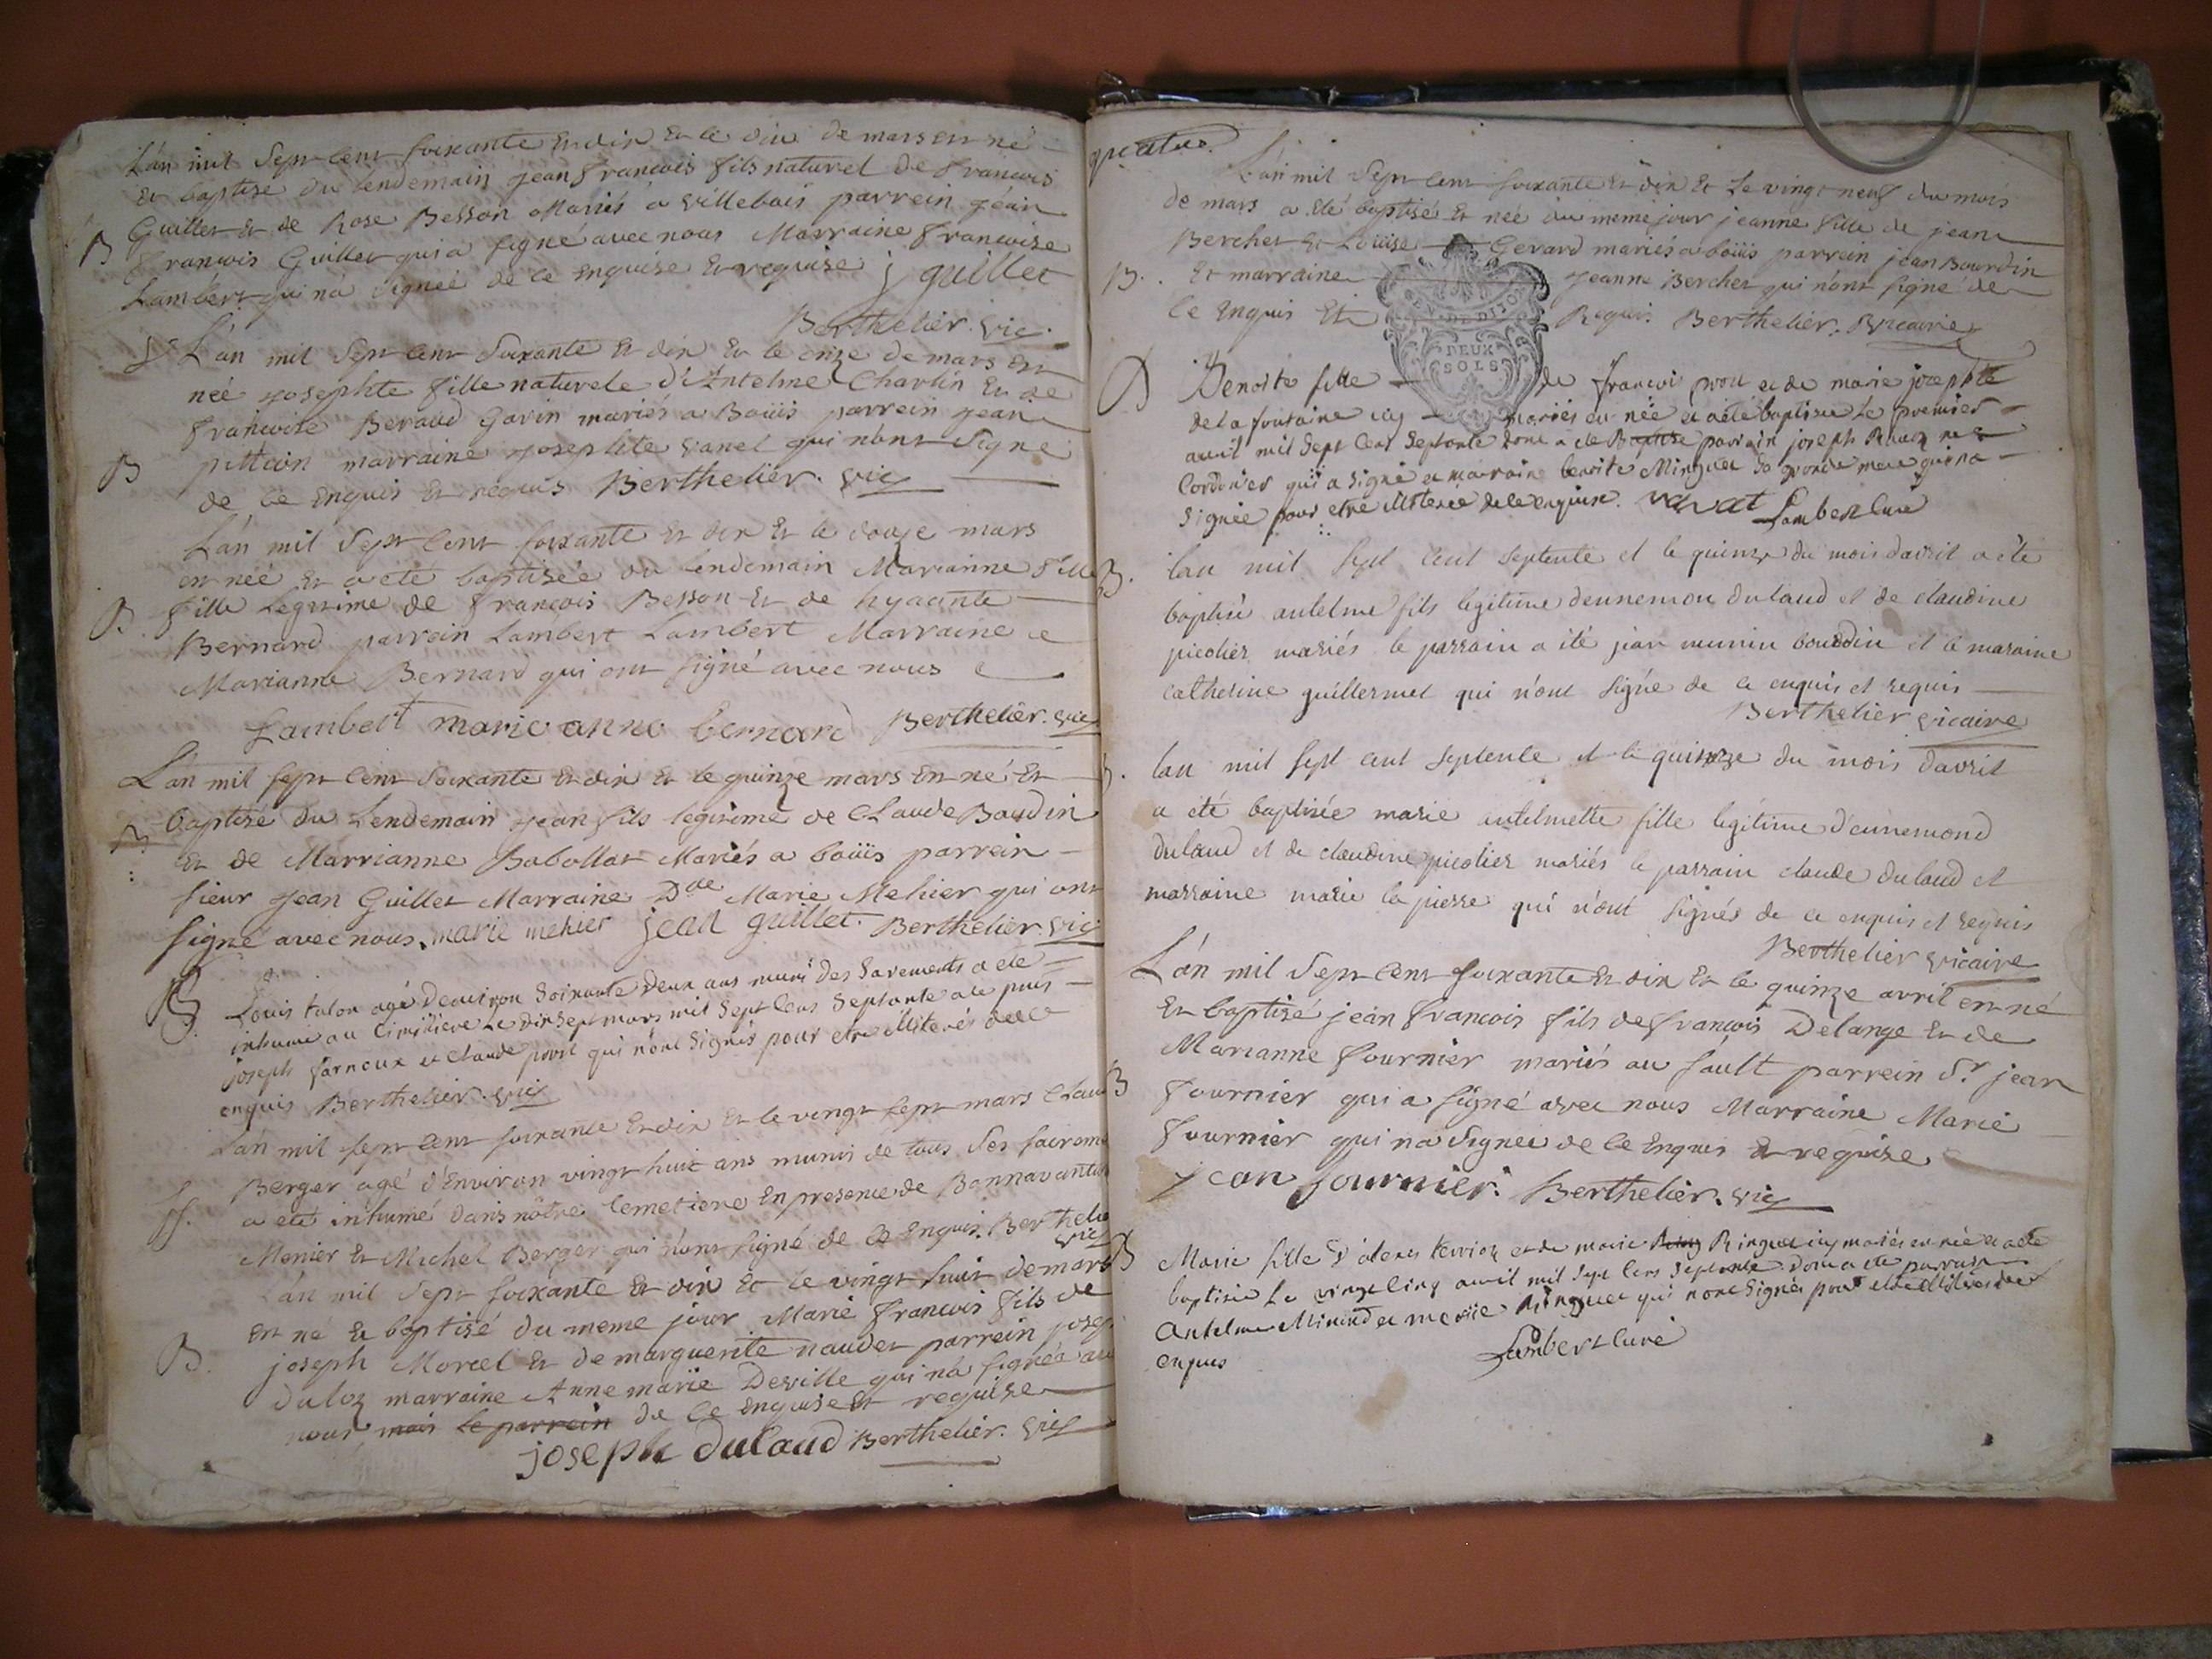 L'an mil Sept cent soixante et dix et le dix de mars est né
et baptisé du lendemain jean francois fils naturel de francois
Guillet et de Rose Besson Mariés a villebois parrein jean
B francois Guillet qui a signé avec nous Marraine francoise
Lambert qui na signeé de ce enquise et requise j guillet
Berthelier. vic.
L'an mil Sept cent Soixante et dix et le onze de mars est
neé josephte fille naturele d'Antelme Charlin et de
francoise Beraud Gavin mariés a Boüis parrein jean
B pittion marraine josephte vanel qui n'ont Signé
de ce enquis et requis Berthelier. vic
L'an mil Sept cent soixante et dix et le douze mars
est neé et a été baptisée au lendemain Marianne fille
B. fille legitime de francois Besson et de hyacinte
Bernard parrein Lambert Lambert Marraine
Marianne Bernard qui ont signé avec nous
Lambert marie anne bernard Berthelier. vic
L'an mil sept cent Soixante et dix et le quinze mars est né et
B baptisé du Lendemain jean fils legitime de Claude Baudin
et de Marrianne Babollat Mariés a boüis parrein
sieur jean Guillet Marraine Dlle Marie Mehier qui ont
signé avec nous. marie mehier jean guillet. Berthelier. vic
Louis talon agé denviron Soixante Deux ans muni des Sacrements a ete
inhumé au Cimitiere Le dix Sept mars mil Sept Cens Septante
joseph farnoux et Claude qui n'ont Signés pour etre illiterés de ce
enquis Berthelier. vic
L'an mil sept cent soixante et dix et le vingt sept mars Clau
Berger agé d'Environ vingt huit ans munis de tous Ses
a eté inhumé dans nôtre Cemetiere En presence de Bonnavantu
Menier et Michel Berger qui n'ont signé de ce enquis. Berthelie
vic
L'an mil Sept soixante et dix et le vingt huit de mars
est né et baptisé du meme jour Marie francois fils de
B. joseph Morel et de marguerite naudet parrein josep
duloz marraine Anne marie Deville qui na signéé avec
nous mais le parrein de ce enquise et requise
joseph dulaud Berthelier. vic
L'an mil Sept cent soixante et dix et Le vingt neuf du mois
de mars a eté baptisé et neé du meme jour jeanne fille de jean
Berchet et Loüise Gerard mariés a boüis parrein jean Bourdin
B. et marraine jeanne Berchet qui n'ont signé de
ce enquis et Requis. Berthelier. vicaire
DE DIJON
DEUX
SOLS
Benoite fille de francoi et de marie josephte
de la fontaine icy mariés est née et a été baptisee Le premier
avril mil Sept Cens Septante parrain joseph
Cordonier qui a Signé et marraine benoite Minguet Sa grande mere qui na
Signée pour etre illiterée de ce enquise. Lambert Curé
B. lan mil sept cent septente et le quinze du mois davril a été
baptisé antelme fils legitime dennemon dulaud et de claudine
picolier mariés le parrain a été jean munin bourdin et la maraine
catherine guillermet qui n'ont signé de ce enquis et requis
Berthelier vicaire
B. lan mil sept cent septente et le quinze du mois davril
a été baptisée marie antelmette fille legitime d'ennemond
dulaud et de claudine picolier mariés le parrain claude dulaud et
marraine marie la pierre qui n'ont signés de ce enquis et requis
Berthelier vicaire
L'an mil Sept cent soixante et dix et le quinze avril est né
et baptisé jean francois fils de francois Delange et de
Marianne fournier mariés au sault parrein Sr jean
B fournier qui a signé avec nous Marraine Marie
fournier qui na Signeé de ce Enquis et requise
jean fournier. Berthelier. vic
B Marie fille et de marie Ringuet icy mariés est née et a été
baptisée Le vingt Cinq avril mil Sept Cens Septante Dont a été parrain
Antelme et marie Ringuet qui n'ont Signés pour etre illiterés de ce
enquis Lambert Curé